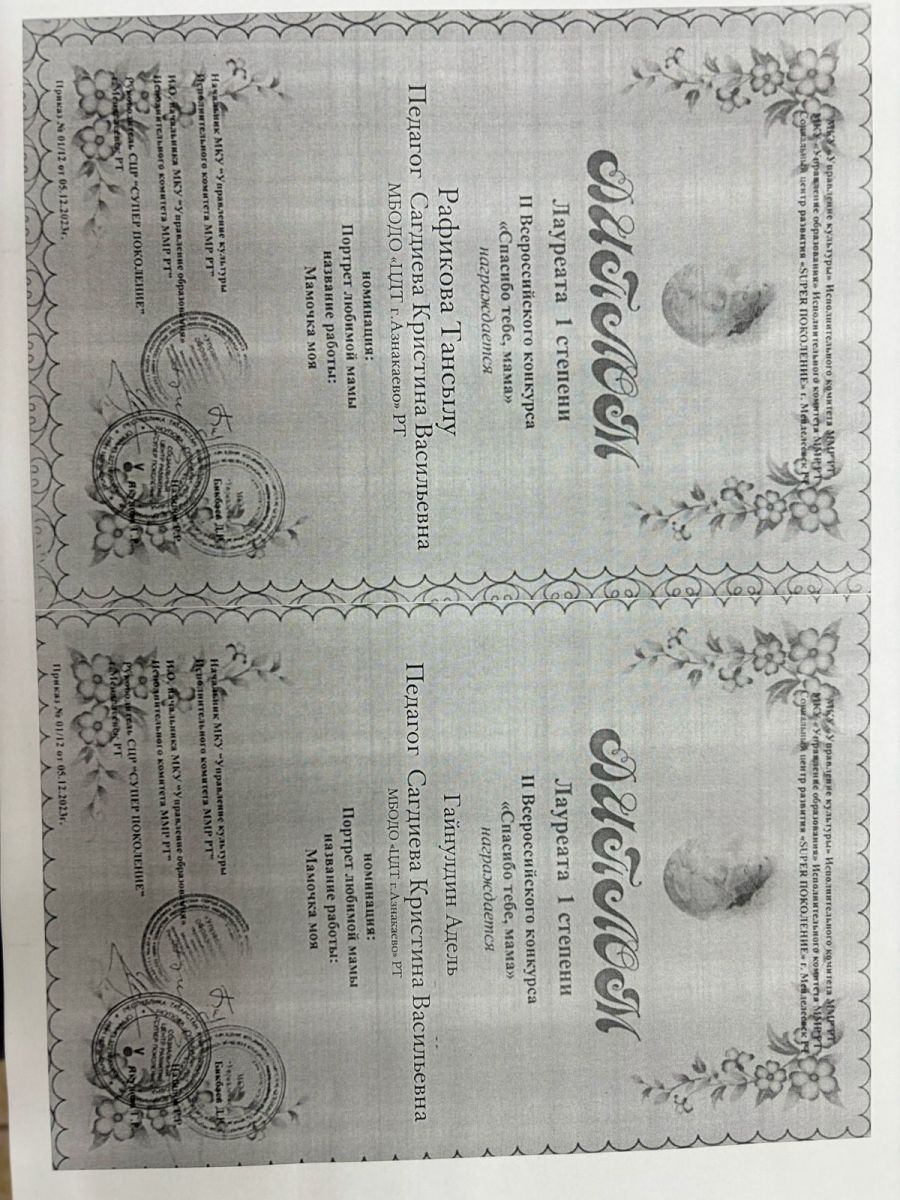 МКУ «Управление культуры» Исполнительного комитета ММР РТ
МКУ «Управление образования» Исполнительного комитета ММР РТ
Социальный центр развития «SUPER ПОКОЛЕНИЕ» г. Менделеевск РТ
ДИПЛОМ
Лауреата 1 степени
II Всероссийского конкурса
«Спасибо тебе, мама»
награждается
Рафикова Тансылу
Педагог Сагдиева Кристина Васильевна
МБОДО «ЦДТ г.Азнакаево» РТ
номинация:
Портрет любимой мамы
название работы:
Мамочка моя
Начальник МКУ "Управление культуры
Исполнительного комитета ММР РТ"
И.О. начальника МКУ "Управление образования
Исполнительного комитета ММР РТ"
Руководитель СЦР "СУПЕР ПОКОЛЕНИЕ"
г.Менделеевск РТ
Бикбаев Д.К.
Приказ № 01/12 от 05.12.2023г.
МКУ «Управление культуры» Исполнительного комитета ММР РТ
МКУ «Управление образования» Исполнительного комитета ММР РТ
Социальный центр развития «SUPER ПОКОЛЕНИЕ» г. Менделеевск РТ
ДИПЛОМ
Лауреата 1 степени
II Всероссийского конкурса
«Спасибо тебе, мама»
награждается
Гайнулдин Адель
Педагог Сагдиева Кристина Васильевна
МБОДО «ЦДТ г.Азнакаево» РТ
номинация:
Портрет любимой мамы
название работы:
Мамочка моя
Начальник МКУ "Управление культуры
Исполнительного комитета ММР РТ"
И.О. начальника МКУ "Управление образования
Исполнительного комитета ММР РТ"
Руководитель СЦР "СУПЕР ПОКОЛЕНИЕ"
г.Менделеевск РТ
Бикбаев Д.К.
Приказ № 01/12 от 05.12.2023г.